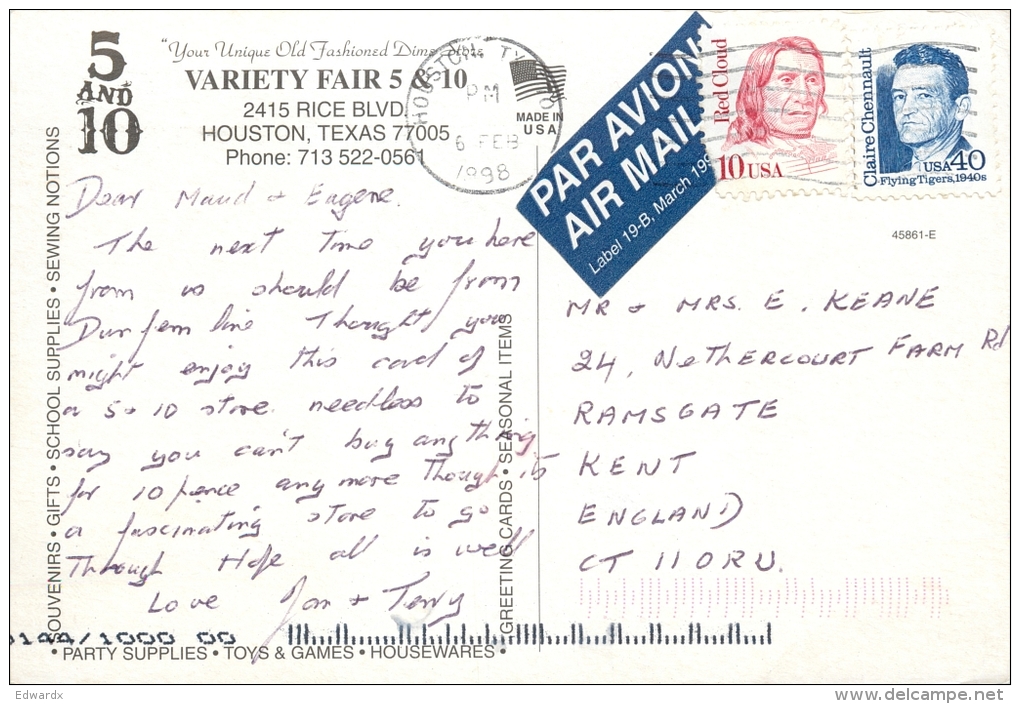 5
AND
10
"Your Unique Old Fashioned Dime Store
VARIETY FAIR 5 & 10
2415 RICE BLVD
HOUSTON, TEXAS 77005
Phone: 713 522-0561
HOUSTON, TX
PM
6 FEB
1998
MADE IN
USA
PAR AVION
AIR MAIL
Label 19-B, March 199
Red Cloud
10 USA
Claire Chennault
USA 40
Flying Tigers, 1940s
45861-E
Dear Maud + Eugene.
The next time you here
from us should be from
Dunfermline Thought you
might enjoy this card of
a 5+10 store. needless to
say you can't buy anything
for 10 pence any more though its
a fascinating store to go
Through Hope all is well
Love Jon + Terry
MR + MRS. E. KEANE
24, NETHERCOURT FARM Rd
RAMSGATE
KENT
ENGLAND
CT 11 0RU.
SOUVENIRS • GIFTS • SCHOOL SUPPLIES • SEWING NOTIONS
GREETING CARDS • SEASONAL ITEMS
• PARTY SUPPLIES • TOYS & GAMES • HOUSEWARES •
/1000 00
Edwardx
delcampe.net